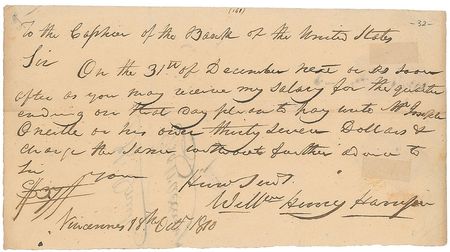 (160)
-32-
To the Cashier of the Bank of the United States
Sir
On the 31st of December next or as soon
after as you may receive my salary for the quarter
ending on that day please to pay unto Mr Joseph
Oneille or his order thirty seven Dollars &
charge the same without further advice to
Sir your
Hum Servt
Willm Henry Harrison
Vincennes 18th Octr 1810